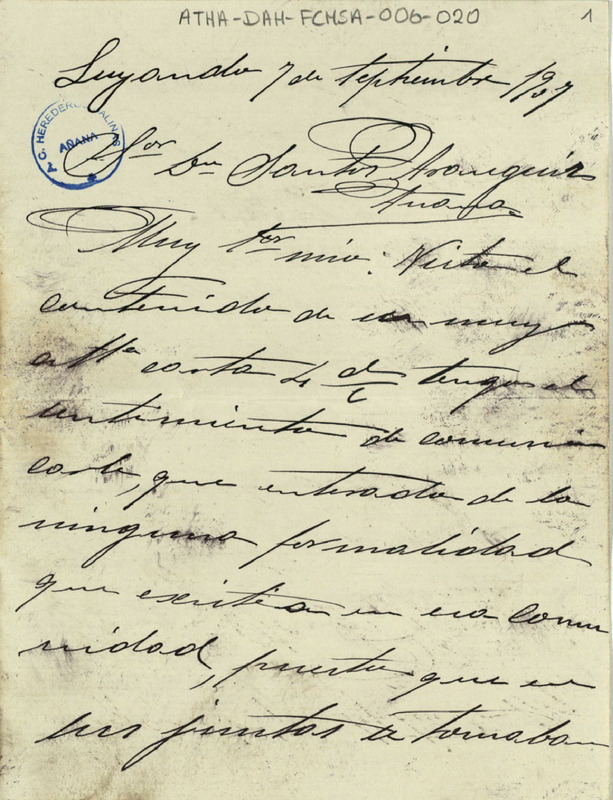 ATHA-DAH-FCHSA-006-020
1
Luyando 7 de Septiembre 1907
A.C. HEREDEROS SALINAS
AÑANA
Sor Dn Santos Aranguiz
Anana
Muy Sor mio: Visto el
contenido de su muy
atta carta 4 d/c tengo el
sentimiento de comuni
carle, que enterado de la
ninguna formalidad
que existia en esa comu
nidad, puesto que en
sus juntas se tomaban